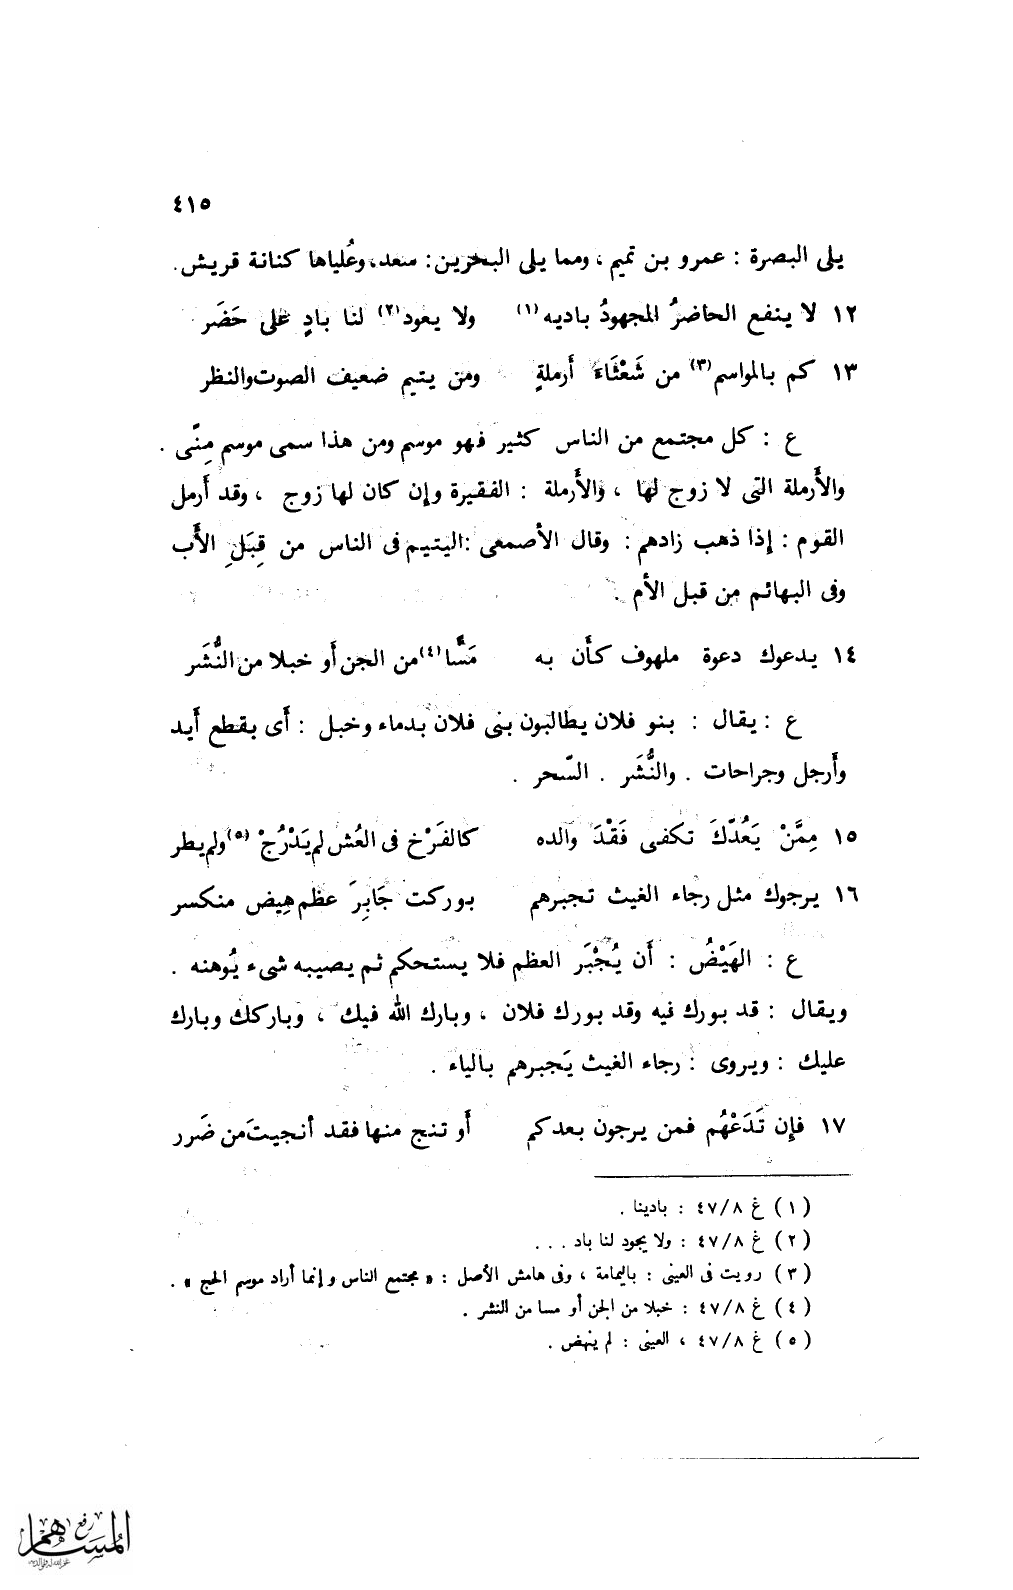 ٤١٥
يلى البصرة : عمرو بن تميم ، ومما يلى البحرين : سعد ، وعُلياها كنانة قريش .
١٢ لا ينفع الحاضرُ المجهودُ باديه (١) ولا يعود (٢) لنا بادٍ على حَضَر
١٣ كم بالمواسم (٣) من شَعْثَاءَ أَرملةٍ ومن يتيم ضعيف الصوت والنظر
ع : كل مجتمع من الناس كثير فهو موسم ومن هذا سمى موسم مِنًى .
والأَرملة التى لا زوج لها ، والأَرملة : الفقيرة وإن كان لها زوج ، وقد أَرمل
القوم : إذا ذهب زادهم : وقال الأصمعى : اليتيم فى الناس من قِبَلِ الأَب
وفى البهائم من قبل الأم .
١٤ يدعوك دعوة ملهوف كأَن به مَسًّا (٤) من الجن أَو خبلا من النُّشَر
ع : يقال : بنو فلان يطالبون بنى فلان بدماء وخبل : أَى بقطع أَيد
وأَرجل وجراحات . والنُّشَر . السّحر .
١٥ مِمَّنْ يَعُدّكَ تكفى فَقْدَ والده كالفَرْخ فى العُش لم يَدْرُجْ (٥) ولم يطر
١٦ يرجوك مثل رجاء الغيث تجبرهم بوركت جَابِرَ عظم هِيض منكسر
ع : الهَيْضُ : أَن يُجْبَر العظم فلا يستحكم ثم يصيبه شىء يُوهنه .
ويقال : قد بورك فيه وقد بورك فلان ، وبارك الله فيك ، وباركك وبارك
عليك : ويروى : رجاء الغيث يَجبرهم بالياء .
١٧ فإن تَدَعْهُم فمن يرجون بعدكم أَو تنج منها فقد أنجيتَ من ضَرر
(١) غ ٤٧/٨ : بادينا .
(٢) غ ٤٧/٨ : ولا يجود لنا باد . . .
(٣) رويت فى العينى : باليمامة ، وفى هامش الأصل : « مجتمع الناس وإنما أراد موسم الحج » .
(٤) غ ٤٧/٨ : خبلا من الجن أو مسا من النشر .
(٥) غ ٤٧/٨ ، العينى : لم ينهض .